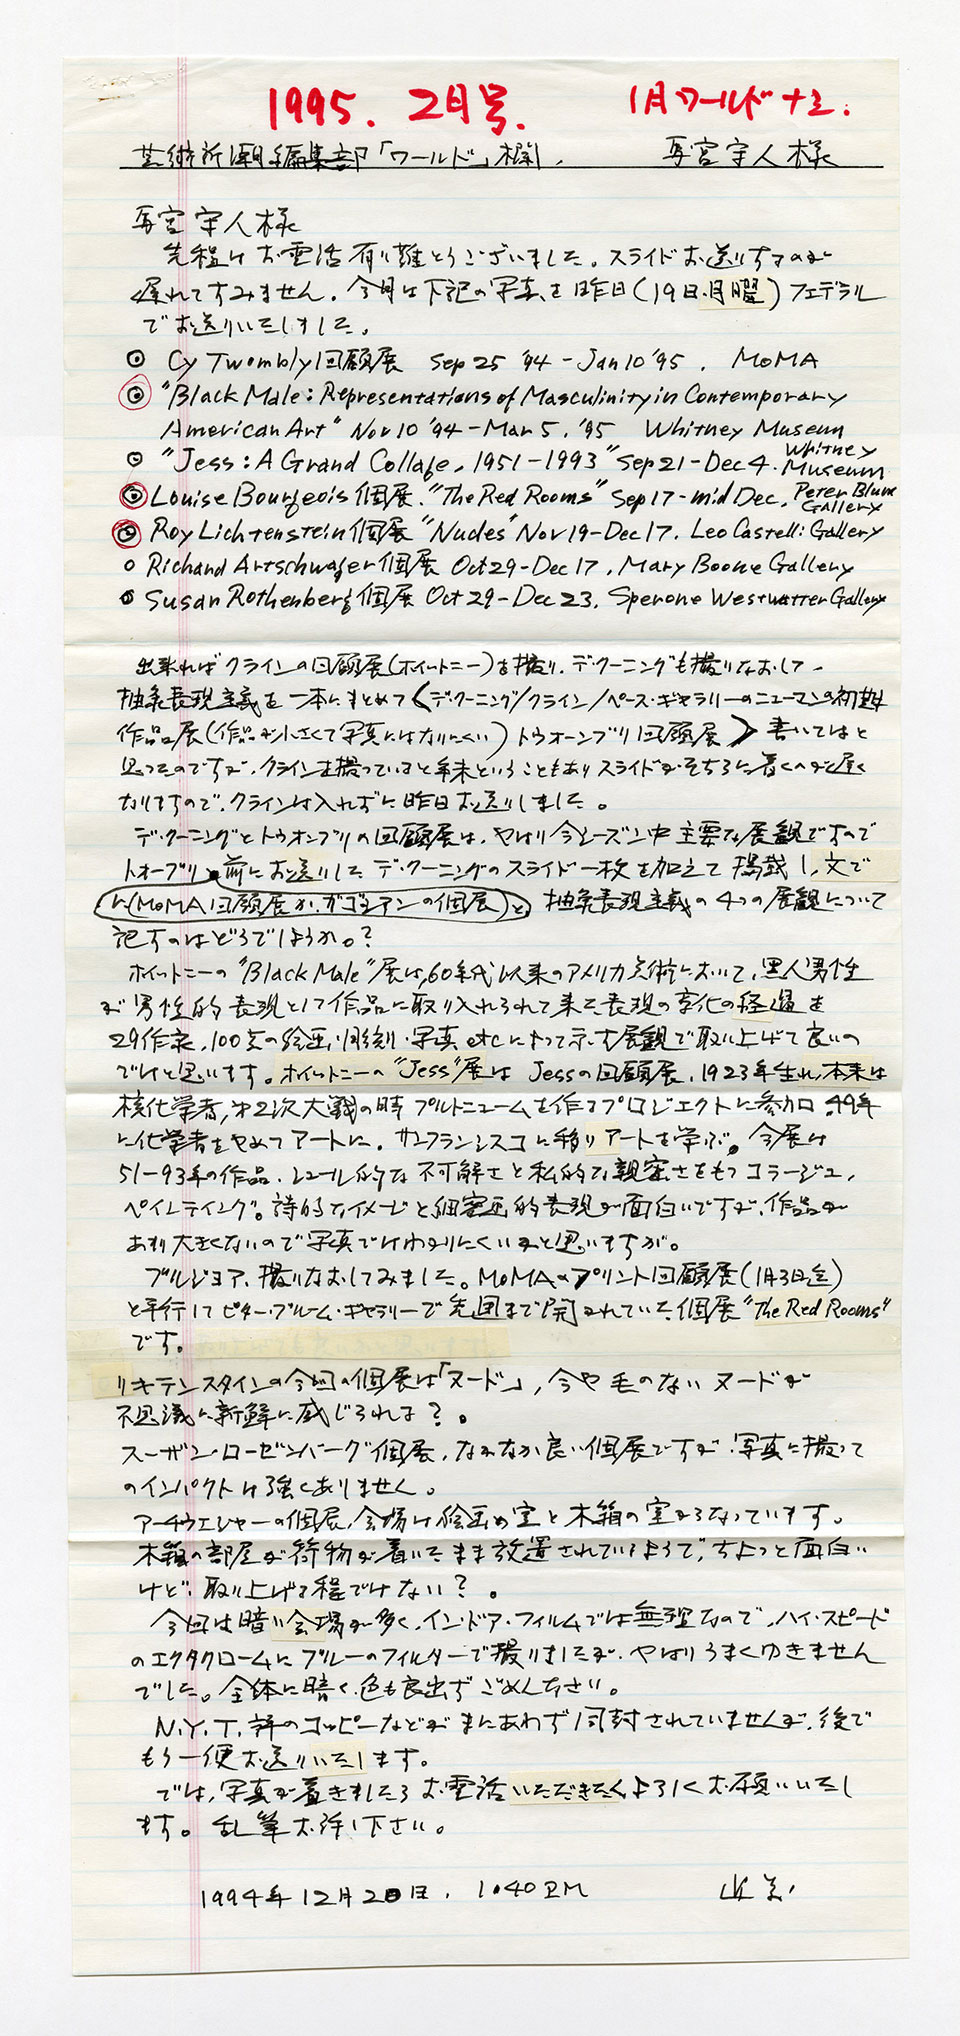 1995. 2月号.
1月ワールドナミ.
芸術新潮編集部「ワールド」欄. 再宮守人様
再宮守人様
先程はお電話有り難とうございました。スライドお送りするのが
遅れてすみません。今月は下記の写真を昨日(19日.月曜)フェデラル
でお送りいたしました。
◎ Cy Twombly回顧展 Sep 25 '94 - Jan 10 '95. MoMA
◎ "Black Male: Representations of Masculinity in Contemporary
American Art" Nov 10 '94 - Mar 5. '95 Whitney Museum
◎ "Jess: A Grand Collage, 1951-1993" Sep 21 - Dec 4. Whitney Museum
◎ Louise Bourgeois個展. "The Red Rooms" Sep 17 - mid Dec. Peter Blum Gallery
◎ Roy Lichtenstein個展 "Nudes" Nov 19 - Dec 17. Leo Castelli Gallery
○ Richard Artschwager個展 Oct 29 - Dec 17. Mary Boone Gallery
○ Susan Rothenberg個展 Oct 29 - Dec 23. Sperone Westwatter Gallery
出来ればクラインの回顧展(ホイットニー)を撮り、デ・クーニングも撮りなおして、
抽象表現主義を一本にまとめて〈デ・クーニング/クライン/ペース・ギャラリーのニューマンの初期
作品展(作品が小さくて写真にはなりにくい)トウオーンブリ回顧展〉書いてはと
思ったのですが、クラインを撮っていると年末ということもありスライドがそちらに着くのが遅く
なりますので、クラインは入れずに昨日お送りしました。
デ・クーニングとトウオンブリの回顧展は、やはり今シーズン中主要な展観ですので
トオーブリと前にお送りしたデ・クーニングのスライド一枚を加えて掲載し、文で
(MoMA回顧展か、ガゴシアンの個展)と 抽象表現主義の4つの展観について
記すのはどうでしようか。?
ホイットニーの"Black Male"展は、60年代以来のアメリカ美術において、黒人男性
が男性的表現として作品に取り入れられて来た表現の変化の経過を
29作家、100点の絵画・彫刻・写真etcによって示す展観で取り上げて良いの
ではと思います。ホイットニーの"Jess"展はJessの回顧展、1923年生れ、本来は
核化学者、第2次大戦の時プルトニュームを作るプロジェクトに参加.49年
に化学者をやめてアートに、サンフランシスコに移りアートを学ぶ。今展は
51-93年の作品、シュール的な不可解さと私的な親密さをもつコラージュ、
ペインティング。詩的なイメージと細密画的表現が面白いですが、作品が
あまり大きくないので写真ではわかりにくいかと思いますが。
ブルジョア、撮りなおしてみました。MoMAのプリント回顧展(1月3日迄)
と平行してピター・ブルーム・ギャラリーで先週まで開されていた個展"The Red Rooms"
です。
リキテンスタインの今回の個展は「ヌード」、今や毛のないヌードが
不思議に新鮮に感じられる?。
スーザン・ローゼンバーグ個展、なかなか良い個展ですが、写真に撮って
のインパクトは強くありません。
アーチウエジャーの個展、会場は絵画の室と木箱の室からなっています。
木箱の部屋が荷物が着いたまま放置されているようで、ちよっと面白い
けど、取り上げる程ではない?。
今回は暗い会場が多く、イン・ドア・フィルムでは無理なので、ハイ・スピード
のエクタクロームにブルーのフィルターで撮りましたが、やはりうまくゆきません
でした。全体に暗く、色も良出ずごめんなさい。
N.Y.T.評のコッピーなどがまにあわず同封されていませんが、後で
もう一便お送りいたします。
では、写真が着きましたらお電話いただきたくよろしくお願いいたし
ます。乱筆お許し下さい。
1994年12月20日. 1.40PM